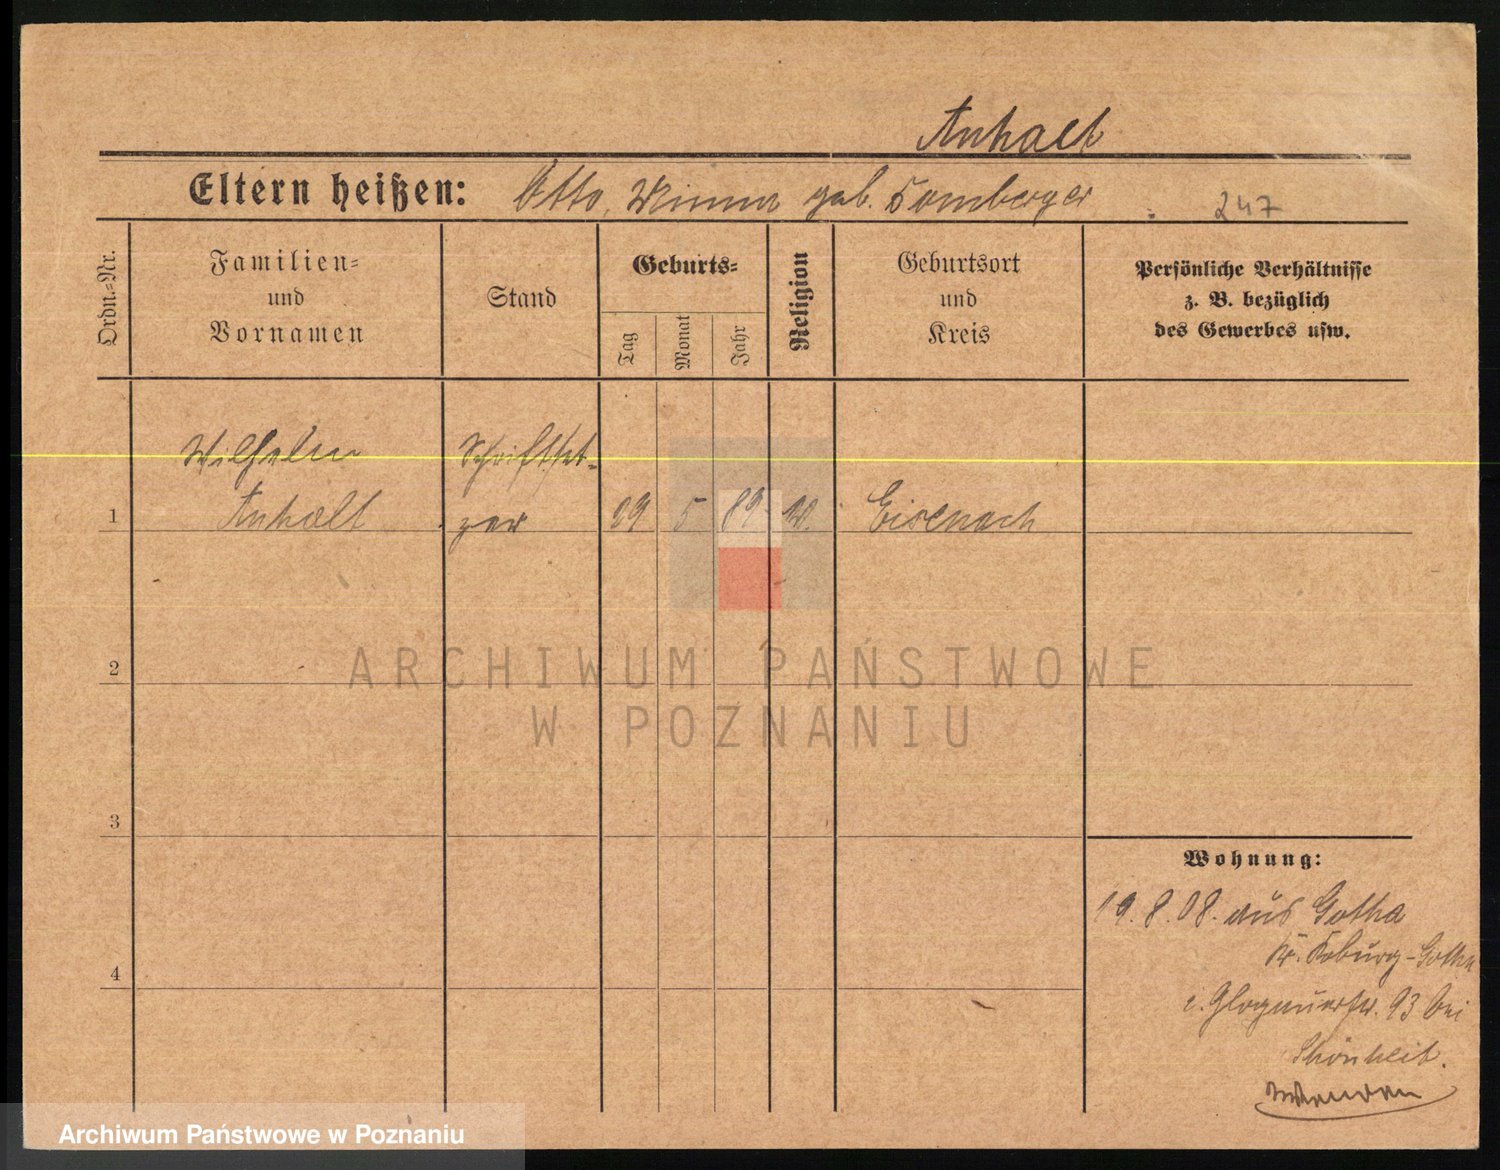 Anhalt
Eltern heißen: Otto, Minna geb. Homberger 247
Ordn.-Nr.
Familien-
und
Vornamen
Stand
Geburts-
Tag
Monat
Jahr
Religion
Geburtsort
und
Kreis
Persönliche Verhältnisse
z. B. bezüglich
des Gewerbes usw.
Wilhelm Schriftset-
1 Anhalt zer 19 5 89 Eisenach
2
ARCHIWUM PAŃSTWOWE
W POZNANIU
3
Wohnung:
19.8.08. aus Gotha
Kr. Koburg-Gotha
Glogauerstr. 93 bei
Schönheit.
4
Wenden
Archiwum Państwowe w Poznaniu